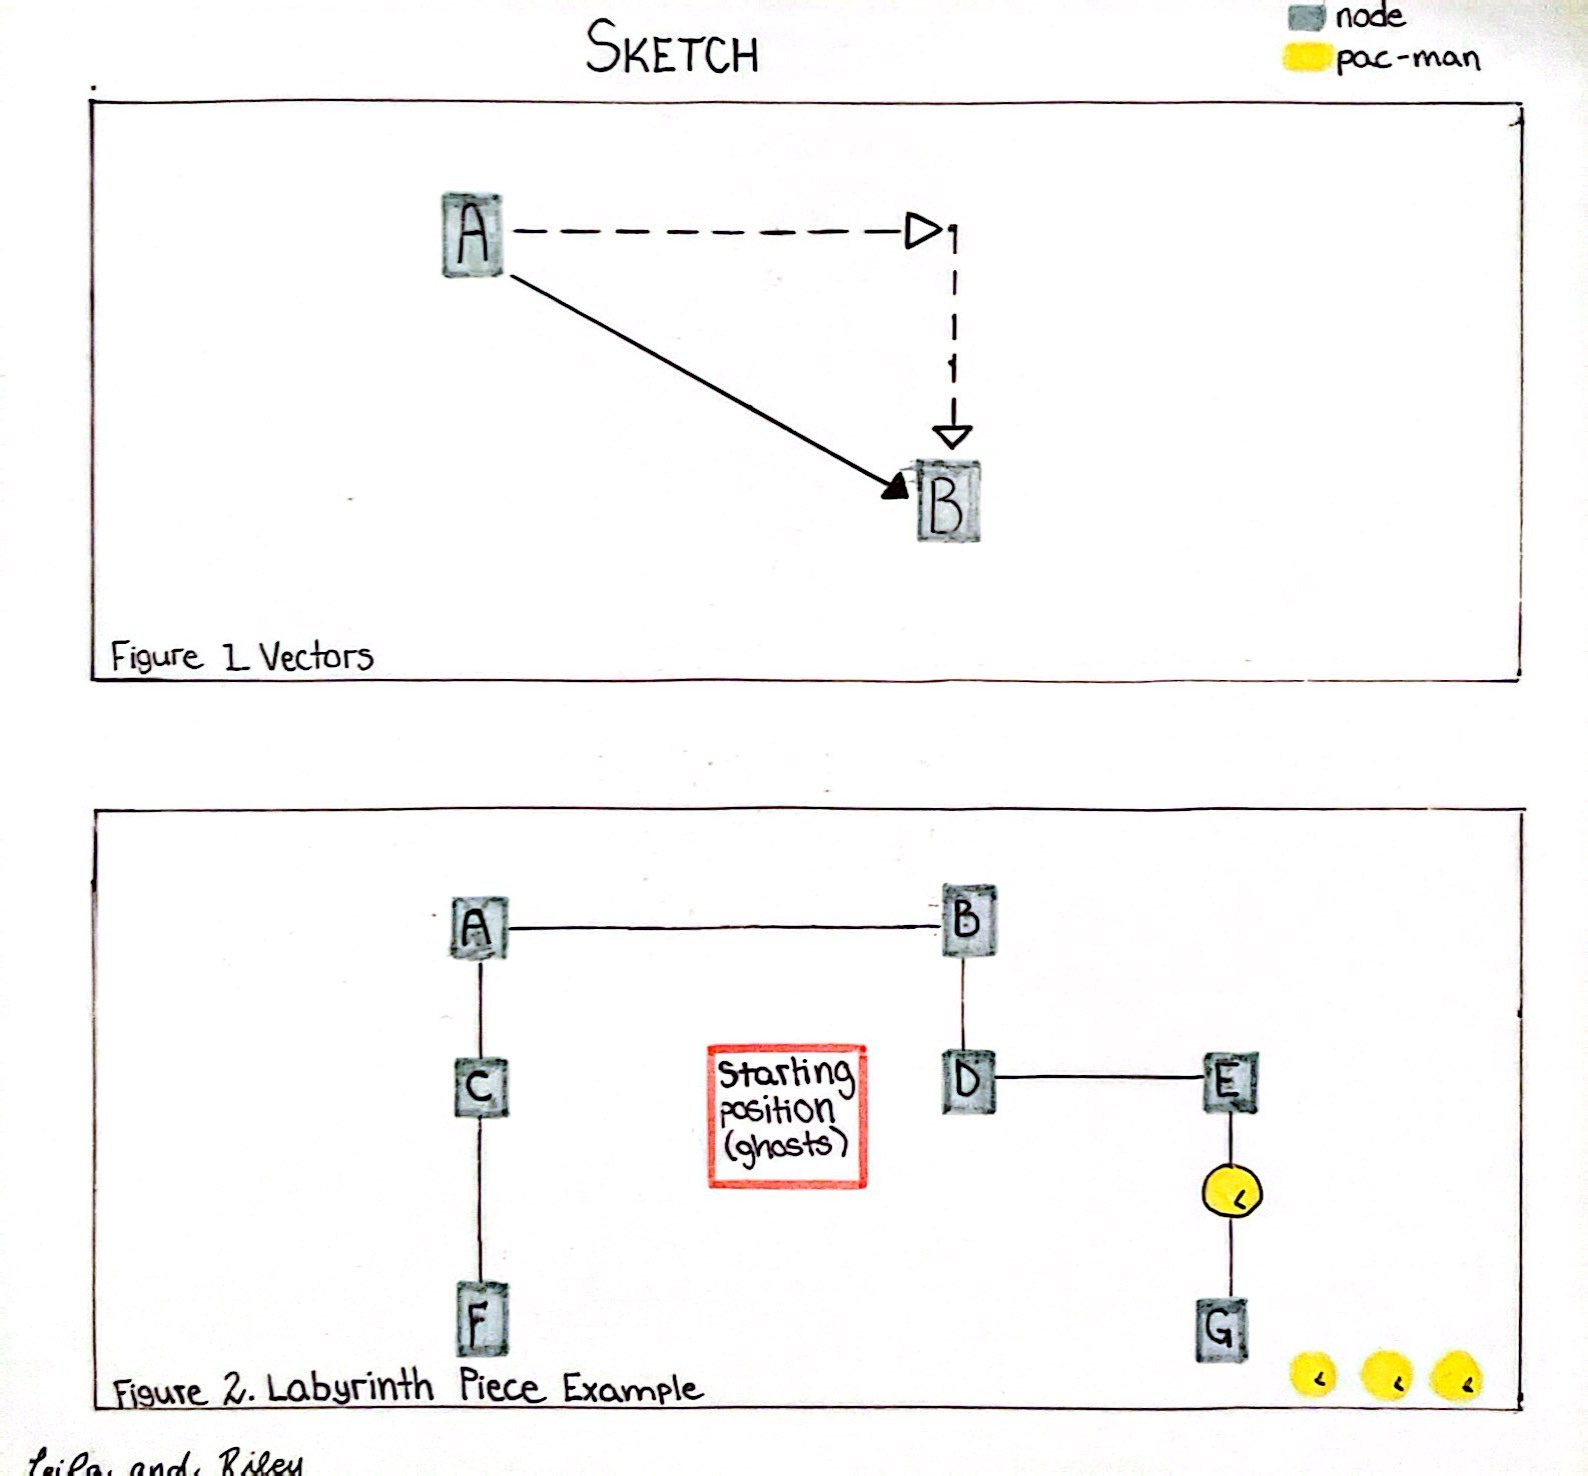 SKETCH
node
pac-man
A
B
Figure 1 Vectors
A
B
C
Starting
position
(ghosts)
D
E
F
G
Figure 2. Labyrinth Piece Example
Leila and Riley